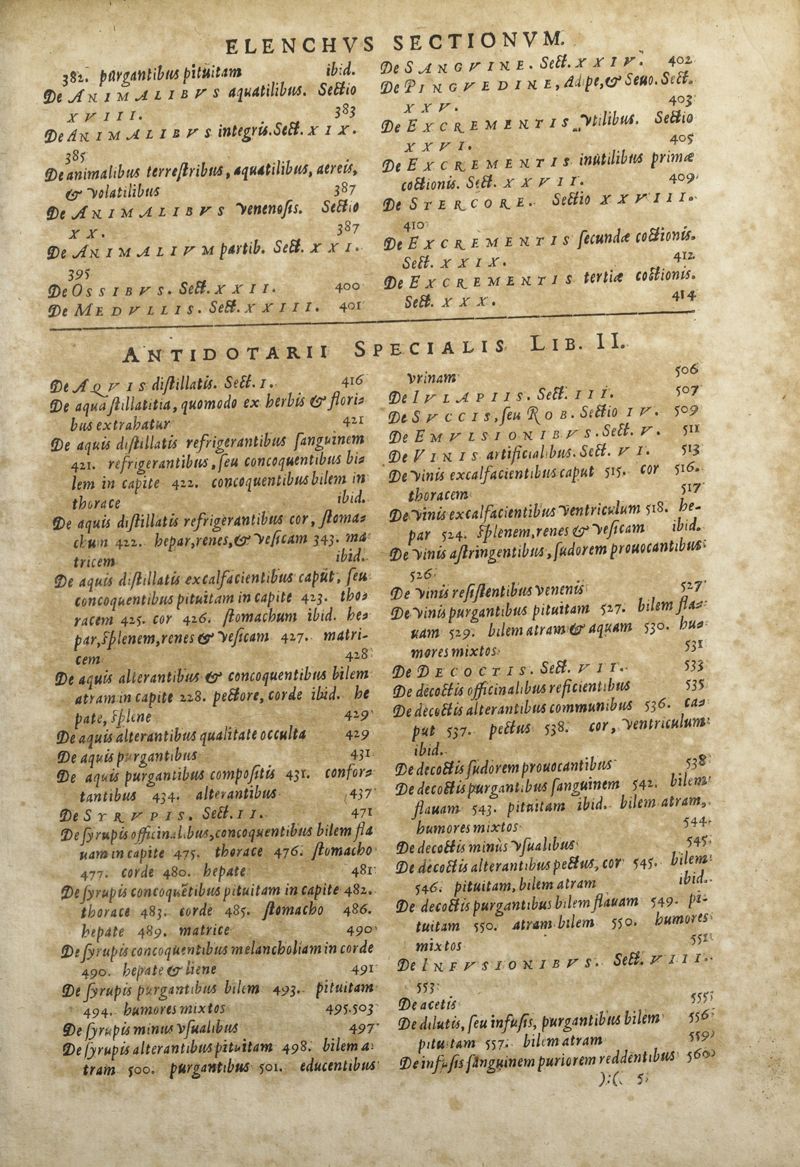 ELENCHVS SECTIONVM.
382. purgantibus pituitam ibid.
De ANIMALIBVS aquatilibus. Sectio
XVIII. 383
De ANIMALIBVS integris. Sect. XIX.
385
De animalibus terrestribus, aquatilibus, aereis,
& volatilibus 387
De ANIMALIBVS venenosis. Sectio
XX. 387
De ANIMALIVM partib. Sect. XXI.
395
De OSSIBVS. Sect. XXII. 400
De MEDVLLIS. Sect. XXIII. 401
De SANGVINE. Sect. XXIV. 402
De PINGVEDINE, Adipe, & Seuo. Sect.
XXV. 403
De EXCREMENTIS vtilibus. Sectio
XXVI. 405
De EXCREMENTIS inutilibus primæ
coctionis. Sect. XXVII. 409
De STERCORE. Sectio XXVIII.
410
De EXCREMENTIS secundæ coctionis.
Sect. XXIX. 412
De EXCREMENTIS tertiæ coctionis.
Sect. XXX. 414
ANTIDOTARII SPECIALIS LIB. II.
De AQVIS distillatis. Sect. I. 416
De aqua stillatitia, quomodo ex herbis & flori=
bus extrahatur 421
De aquis distillatis refrigerantibus sanguinem
421. refrigerantibus, seu concoquentibus bi=
lem in capite 422. concoquentibus bilem in
thorace ibid.
De aquis distillatis refrigerantibus cor, stoma=
chum 422. hepar, renes, & vesicam 343. ma=
tricem ibid.
De aquis distillatis excalfacientibus caput, seu
concoquentibus pituitam in capite 423. tho=
racem 425. cor 426. stomachum ibid. he=
par, splenem, renes & vesicam 427. matri-
cem 428
De aquis alterantibus & concoquentibus bilem
atram in capite 228. pectore, corde ibid. he
pate, splene 429
De aquis alterantibus qualitate occulta 429
De aquis purgantibus 431
De aquis purgantibus compositis 431. confor=
tantibus 434. alterantibus 437
De SYRVPIS. Sect. II. 471
De syrupis officinalibus, concoquentibus bilem fla
uam in capite 475. thorace 476. stomacho
477. corde 480. hepate 481
De syrupis concoquētibus pituitam in capite 482.
thorace 483. corde 485. stomacho 486.
hepate 489. matrice 490
De syrupis concoquentibus melancholiam in corde
490. hepate & liene 491
De syrupis purgantibus bilem 493. pituitam
494. humores mixtos 495.503
De syrupis minus vsualibus 497
De syrupis alterantibus pituitam 498. bilem a=
tram 500. purgantibus 501. educentibus
vrinam 506
De IVLAPIIS. Sect. III. 507
De SVCCIS, seu ROB. Sectio IV. 509
De EMVLSIONIBVS. Sect. V. 511
De VINIS artificialibus. Sect. VI. 513
De vinis excalfacientibus caput 515. cor 516.
thoracem 517
De vinis excalfacientibus ventriculum 518. he-
par 524. splenem, renes & vesicam ibid.
De vinis astringentibus, sudorem prouocantibus
526
De vinis resistentibus venenis 527
De vinis purgantibus pituitam 527. bilem fla=
uam 529. bilem atram & aquam 530. hu=
mores mixtos 531
De DECOCTIS. Sect. VII. 533
De decoctis officinalibus reficientibus 535
De decoctis alterantibus communibus 536. ca=
put 537. pectus 538. cor, ventriculum
ibid.
De decoctis sudorem prouocantibus 538
De decoctis purgantibus sanguinem 542. bilem
flauam 543. pituitam ibid. bilem atram,
humores mixtos 544
De decoctis minùs vsualibus 545
De decoctis alterantibus pectus, cor 545. bilem
546. pituitam, bilem atram ibid.
De decoctis purgantibus bilem flauam 549. pi-
tuitam 550. atram bilem 550. humores
mixtos 551
De INFVSIONIBVS. Sect. VIII.
553
De acetis 555
De dilutis, seu infusis, purgantibus bilem 556
pituitam 557. bilem atram 559
De infusis sanguinem puriorem reddentibus 560
):( 5